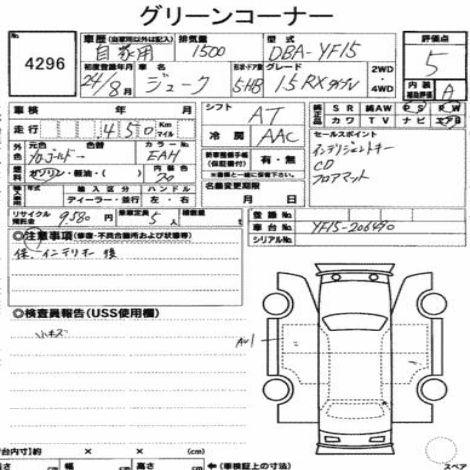 グリーンコーナー
No. 車歴 (自家用以外は記入) 排気量 型式 評価点
4296 自家用 1500 DBA-YF15 5
初度登録年月 車名 形状・ドア数 グレード 2WD・4WD 内装補助評価
24/8月 ジューク 5HB 15RX A
車検 年 月 シフト AT 純正品 SR 純AW PS PW
走行 450 Km マイル 冷房 AAC カワ TV ナビ エアB
外色 元色 色替 カラーNo. セールスポイント
EAH 新車整備手帳(保証書付) 有・無 インテリジェントキー
燃料 ガソリン・軽油・( ) 内装色 ※車と一緒に保管ください。 CD
名義変更期限 フロアマット
輸入車 年式 輸入区分 ハンドル
ディーラー・並行 左・右 月 日
リサイクル預託金 9580円 乗車定員 5人 積載量 登録No.
車台No. YF15-206490
シリアルNo.
◎注意事項 (修復・不具合箇所および状態等)
保、インテリキー 後
◎検査員報告(USS使用欄)
小キズ
AU1
荷台内寸) × × (cm)
長さ 幅 高さ (cm) ←(車検証上の寸法) スペア